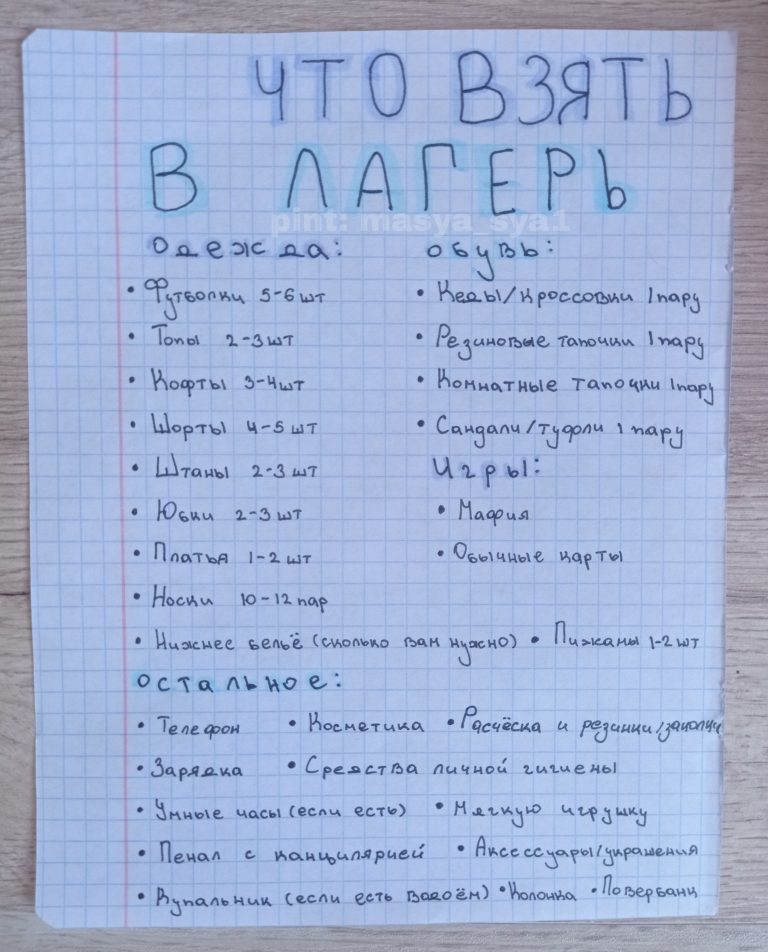 ЧТО ВЗЯТЬ
В ЛАГЕРЬ
pint: masya_sya1
Одежда:
• Футболки 5-6 шт
• Топы 2-3 шт
• Кофты 3-4 шт
• Шорты 4-5 шт
• Штаны 2-3 шт
• Юбки 2-3 шт
• Платья 1-2 шт
• Носки 10-12 пар
• Нижнее бельё (сколько вам нужно) • Пижамы 1-2 шт
Обувь:
• Кеды/кроссовки 1 пару
• Резиновые тапочки 1 пару
• Комнатные тапочки 1 пару
• Сандали/туфли 1 пару
Игры:
• Мафия
• Обычные карты
Остальное:
• Телефон • Косметика • Расчёска и резинки/заколки
• Зарядка • Средства личной гигиены
• Умные часы (если есть) • Мягкую игрушку
• Пенал с канцилярией • Аксессуары/украшения
• Купальник (если есть водоём) • Колонка • Повербанк